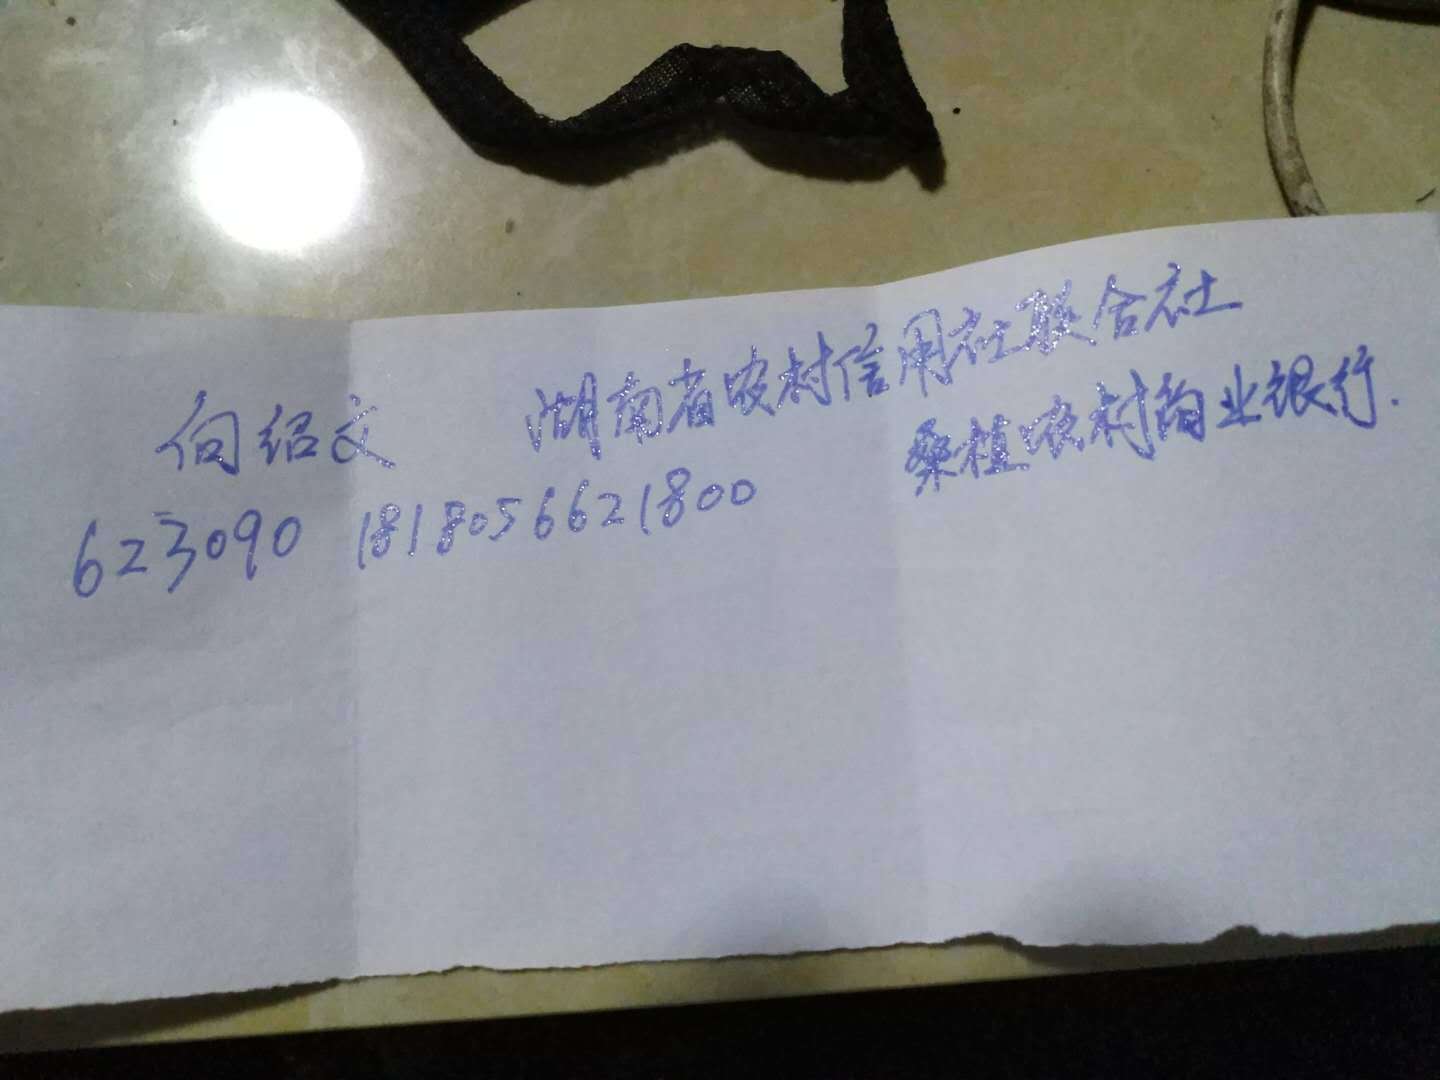 向绍文 湖南省农村信用社联合社
桑植农村商业银行.
623090 1818056621800